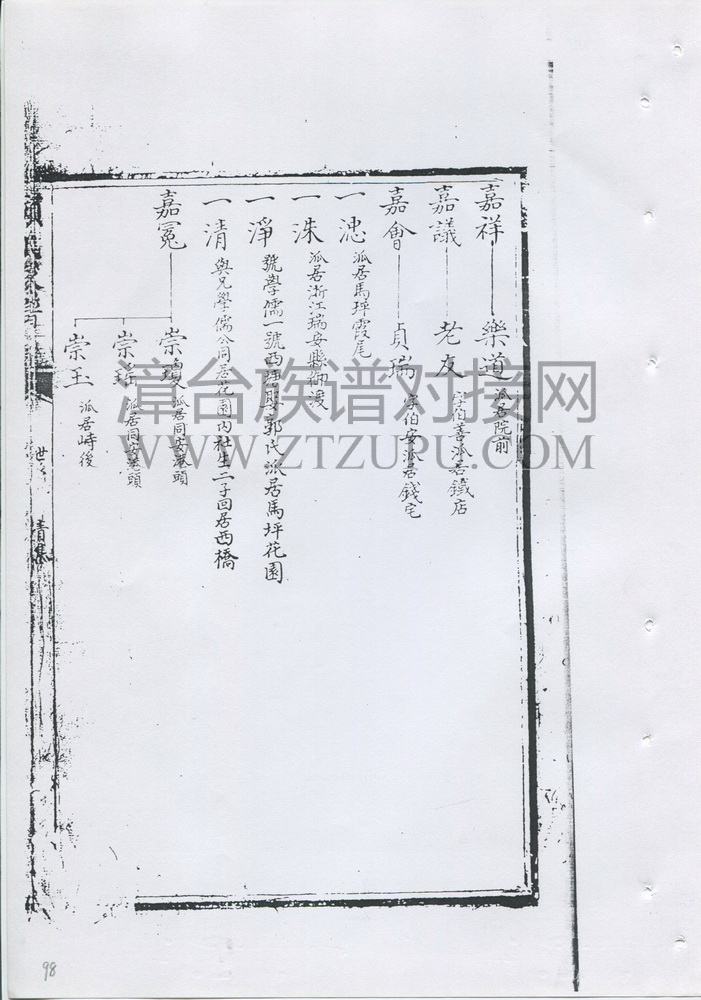 嘉祥 樂道 派居院前
嘉議 老友 字伯善派居鐵店
嘉會 貞瑞 字伯安派居錢宅
一 派居馬坪霞尾
一洙 派居浙江瑞安縣 渡
一淨 號學儒一號西坪娶郭氏派居馬坪花園
一清 與兄學儒公同居花園內社生二子回居西橋
嘉冕
崇瓊 派居同安港頭
崇瑤 派居同安港頭
崇玉 派居峙後
世系
清集
漳台族谱对接网
WWW.ZTZUPU.COM
98